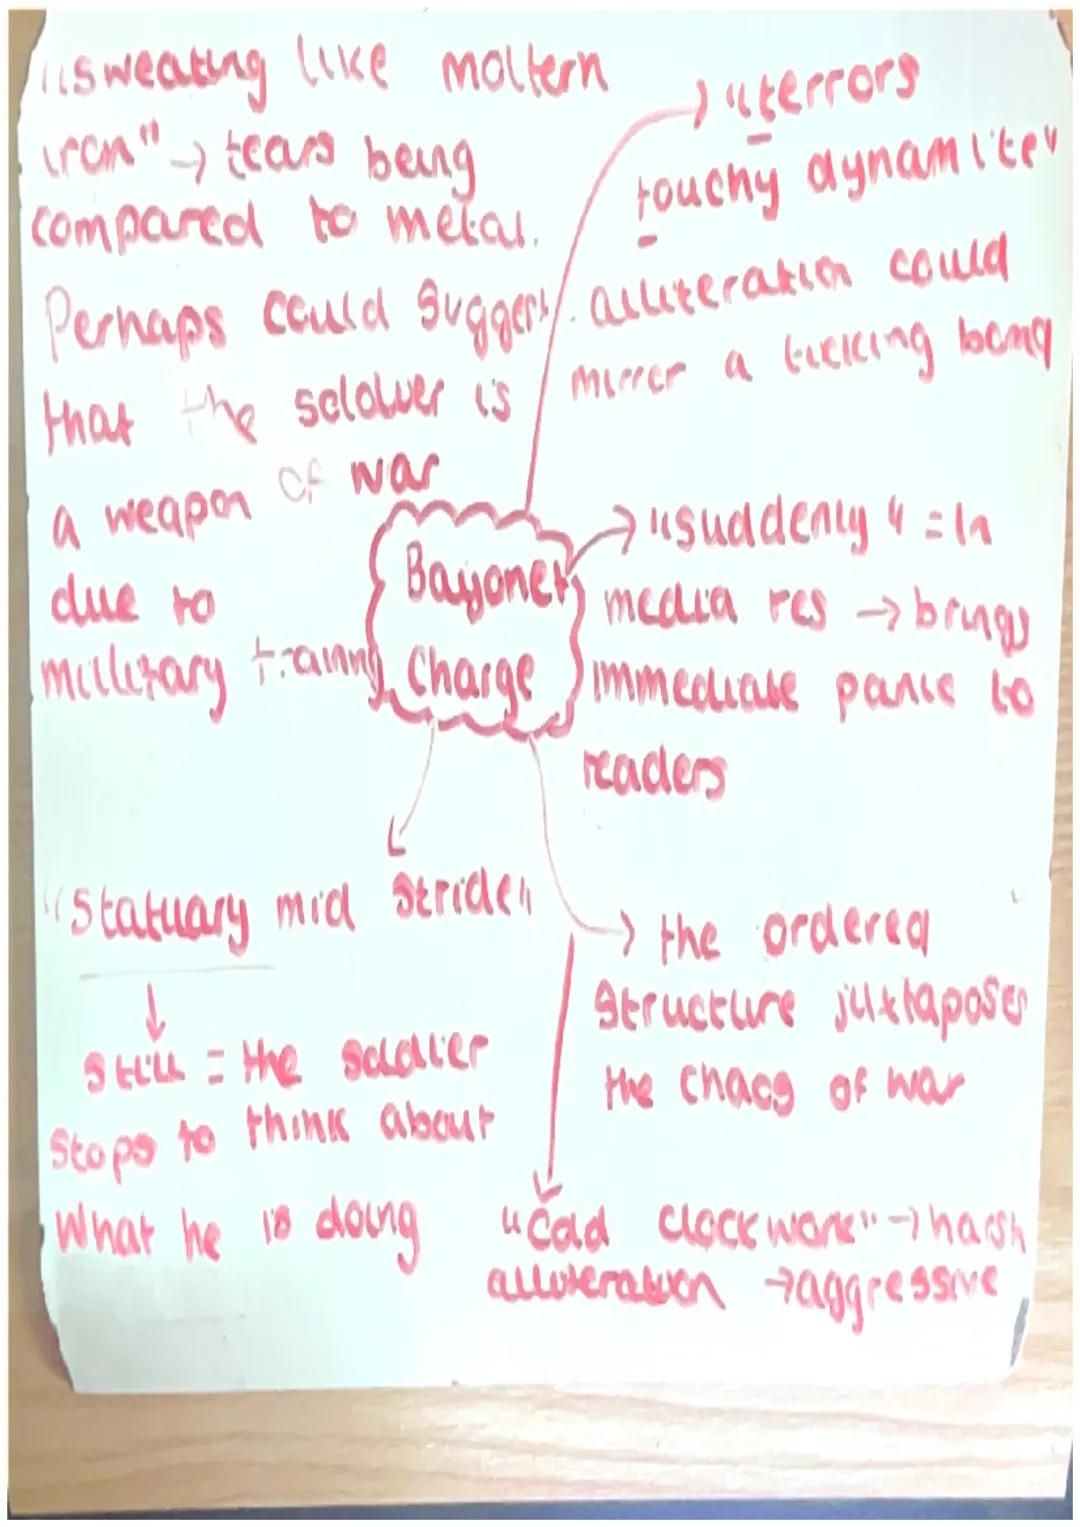 "sweating like moltern
iron" → tears being
compared to metal.
Perhaps could suggest
that the soldier is
a weapon of war
due to
millitary training
→ "terrors
touchy dynamite"
alliteration could
mirror a ticking bomb
Bayonet
Charge
→ "suddenly" = In
media res → brings
immediate panic to
readers
"Statuary mid stride"
↓
still = the soldier
stops to think about
What he is doing
→ the ordered
structure juxtaposes
the chaos of war
"Cold clockwork" → harsh
alliteration → aggressive